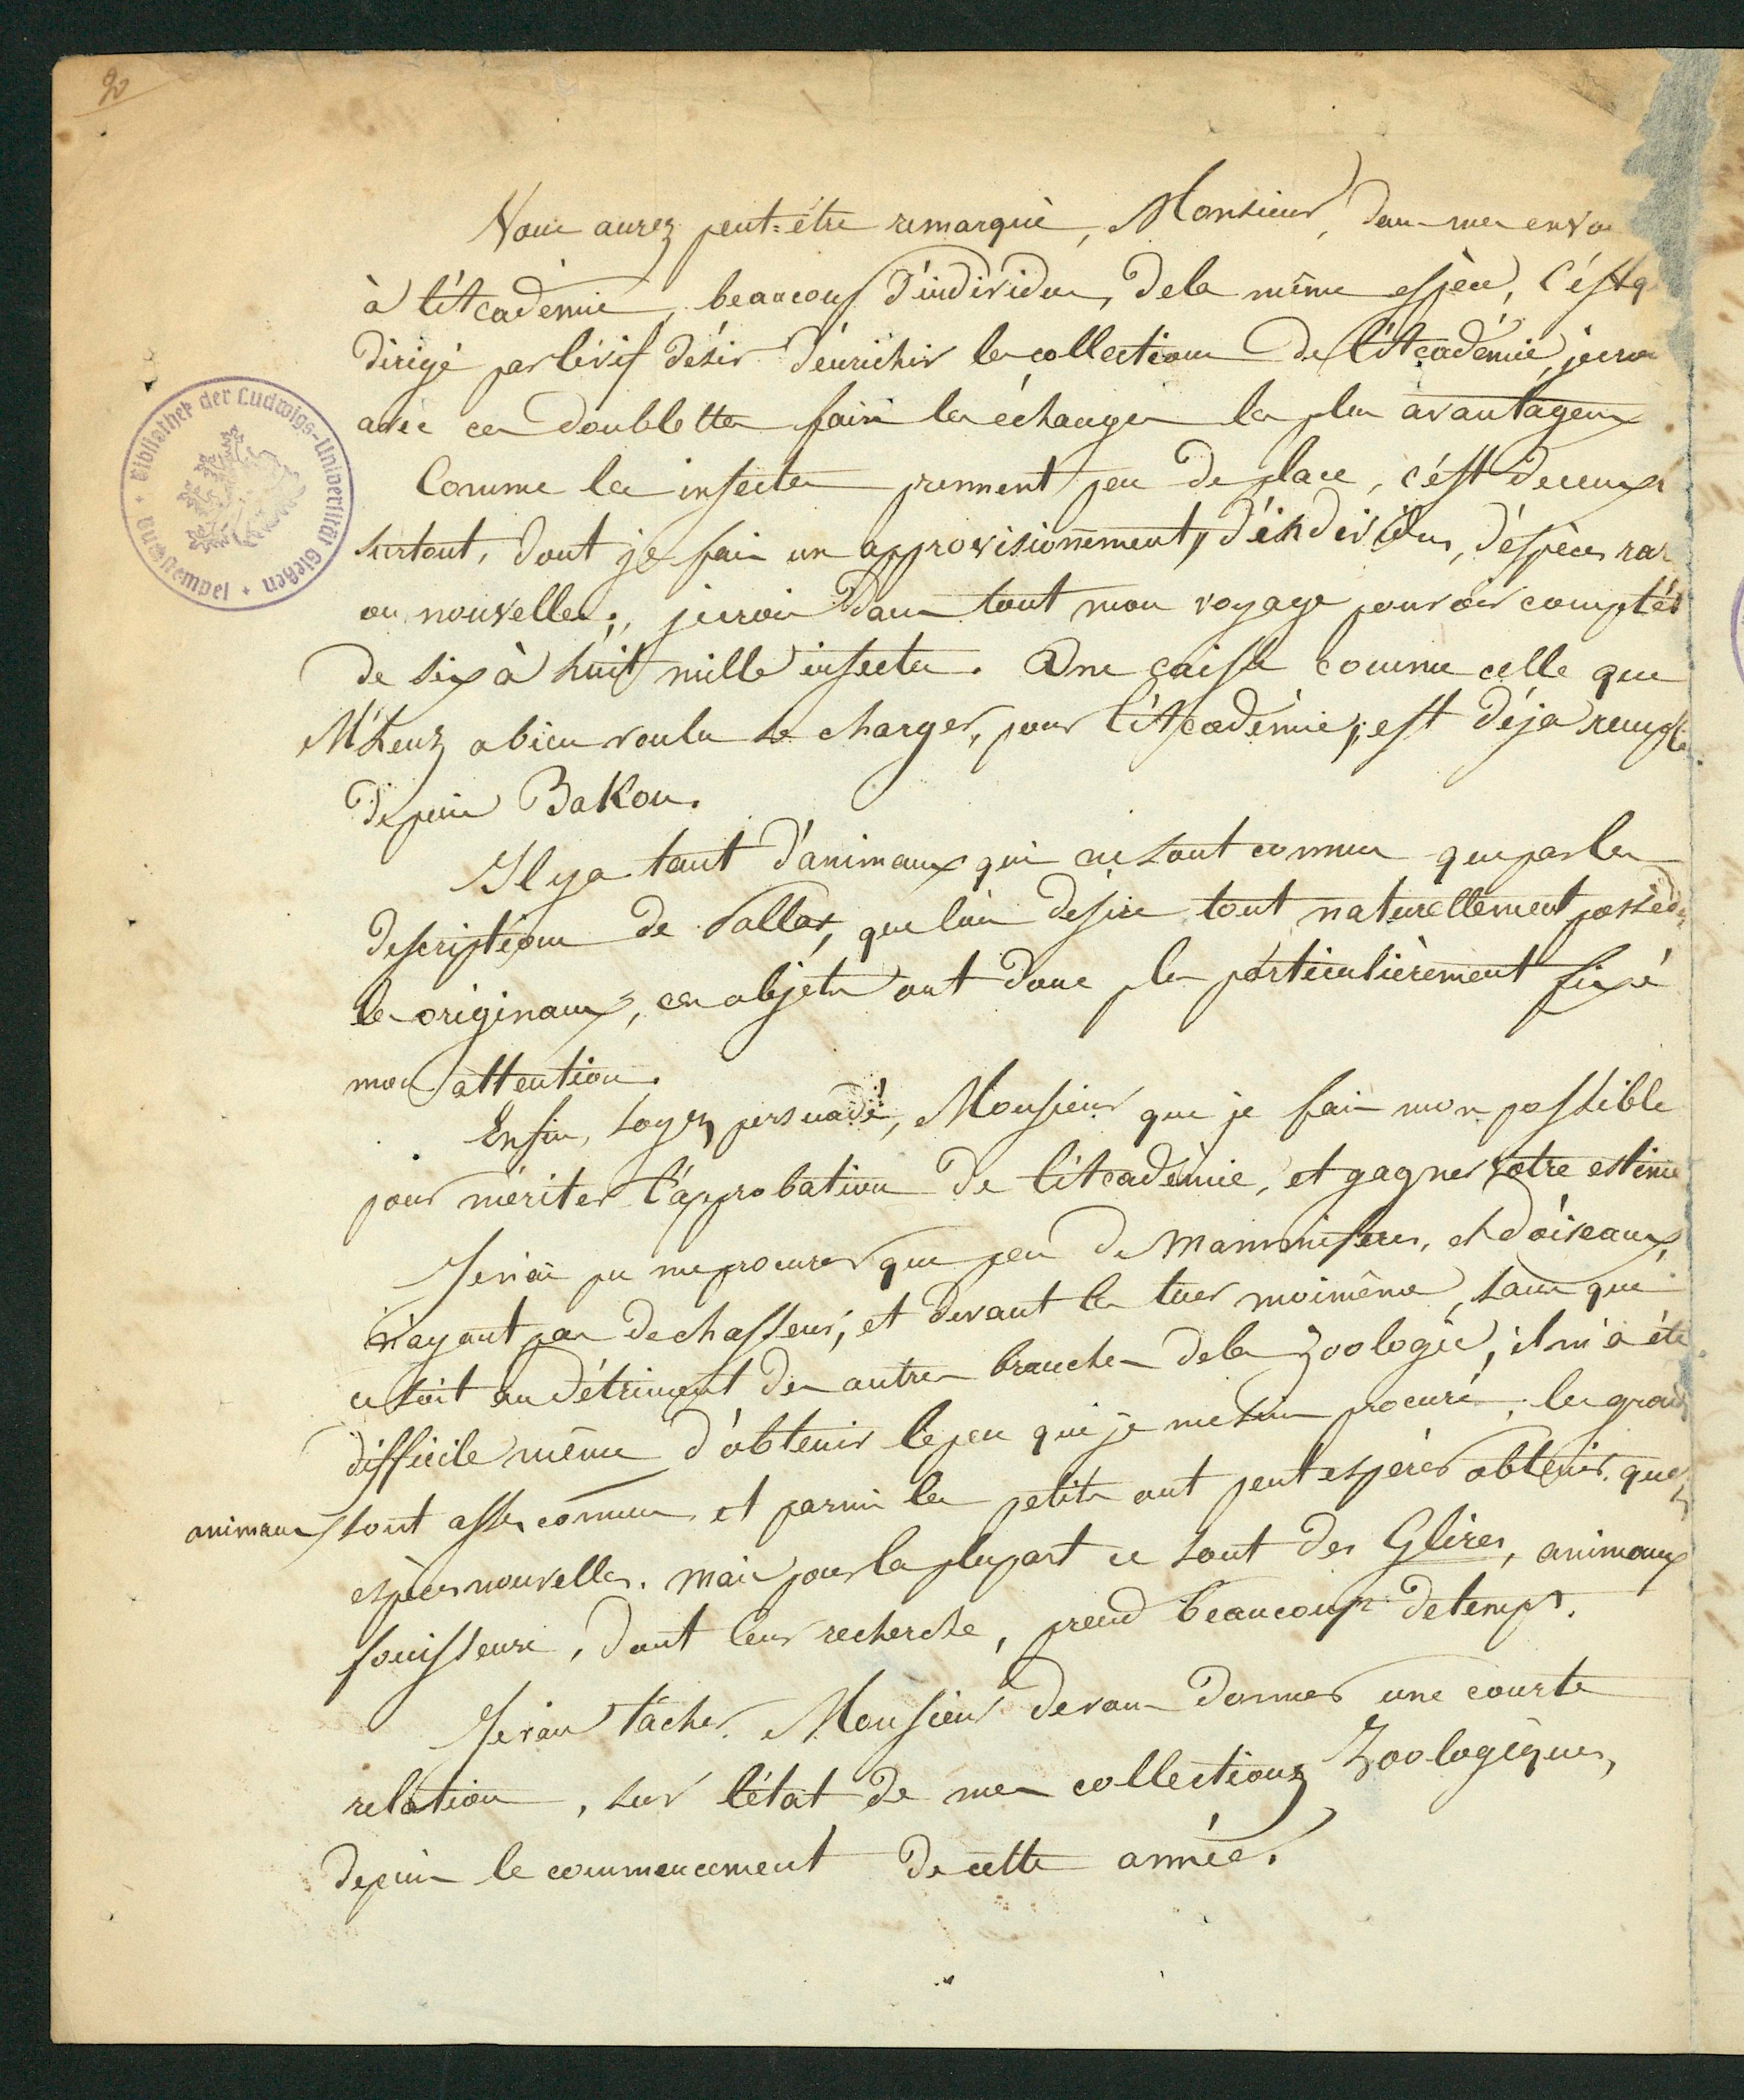 90
Vous aurez peut-être remarqué, Monsieur, dans mes envois
à l'Academie, beaucoup d'individus, dela même espèce, C'est q
dirigé par le vif désir d'enrichir les collections de l'Academie, je crois
avec ces doublettes faire les échanges les plus avantageux
Comme les insectes prennent peu de place, c'est de ceux
surtout, dont je fais un approvisionnement, d'individus, d'espèces rar
ou nouvelles; je crois dans tout mon voyage pouvoir compter
de six à huit mille insectes. Une caisse comme celle que
Mr Lenz a bien voulu se charger, pour l'Academie, est déja remplie
depuis Bakou.
Il y a tant d'animaux qui ne sont connus que par les
descriptions de Pallas, que l'on desire tout naturellement posseder
les originaux, ces objets ont donc plus particulièrement fixé
mon attention.
Enfin, soyez persuadé, Monsieur que je fais mon possible
pour mériter l'approbation de l'Academie, et gagner votre estime
Je n'ai pu me procurer que peu de Mammiferes, et d'oiseaux,
n'ayant pas de chasseur, et devant les tuer moimême, sans que
ce soit au détriment des autres branches dela Zoologie, il m'a été
difficile même d'obtenir le peu que je me suis procuré, les grands
animaux sont assez connus, et parmi les petits ont peut espérer obtenir quelq
espèces nouvelles. mais pour la plupart ce sont des Glires, animaux
fouisseurs, dont leur recherche, prend beaucoup detemps.
Je vais tâcher, Monsieur de vous donner une courte
relation, sur l'état de mes collections Zoologiques,
depuis le commencement de cette année.
Bibliothek der Ludwigs-Universität Gießen + Austempel +